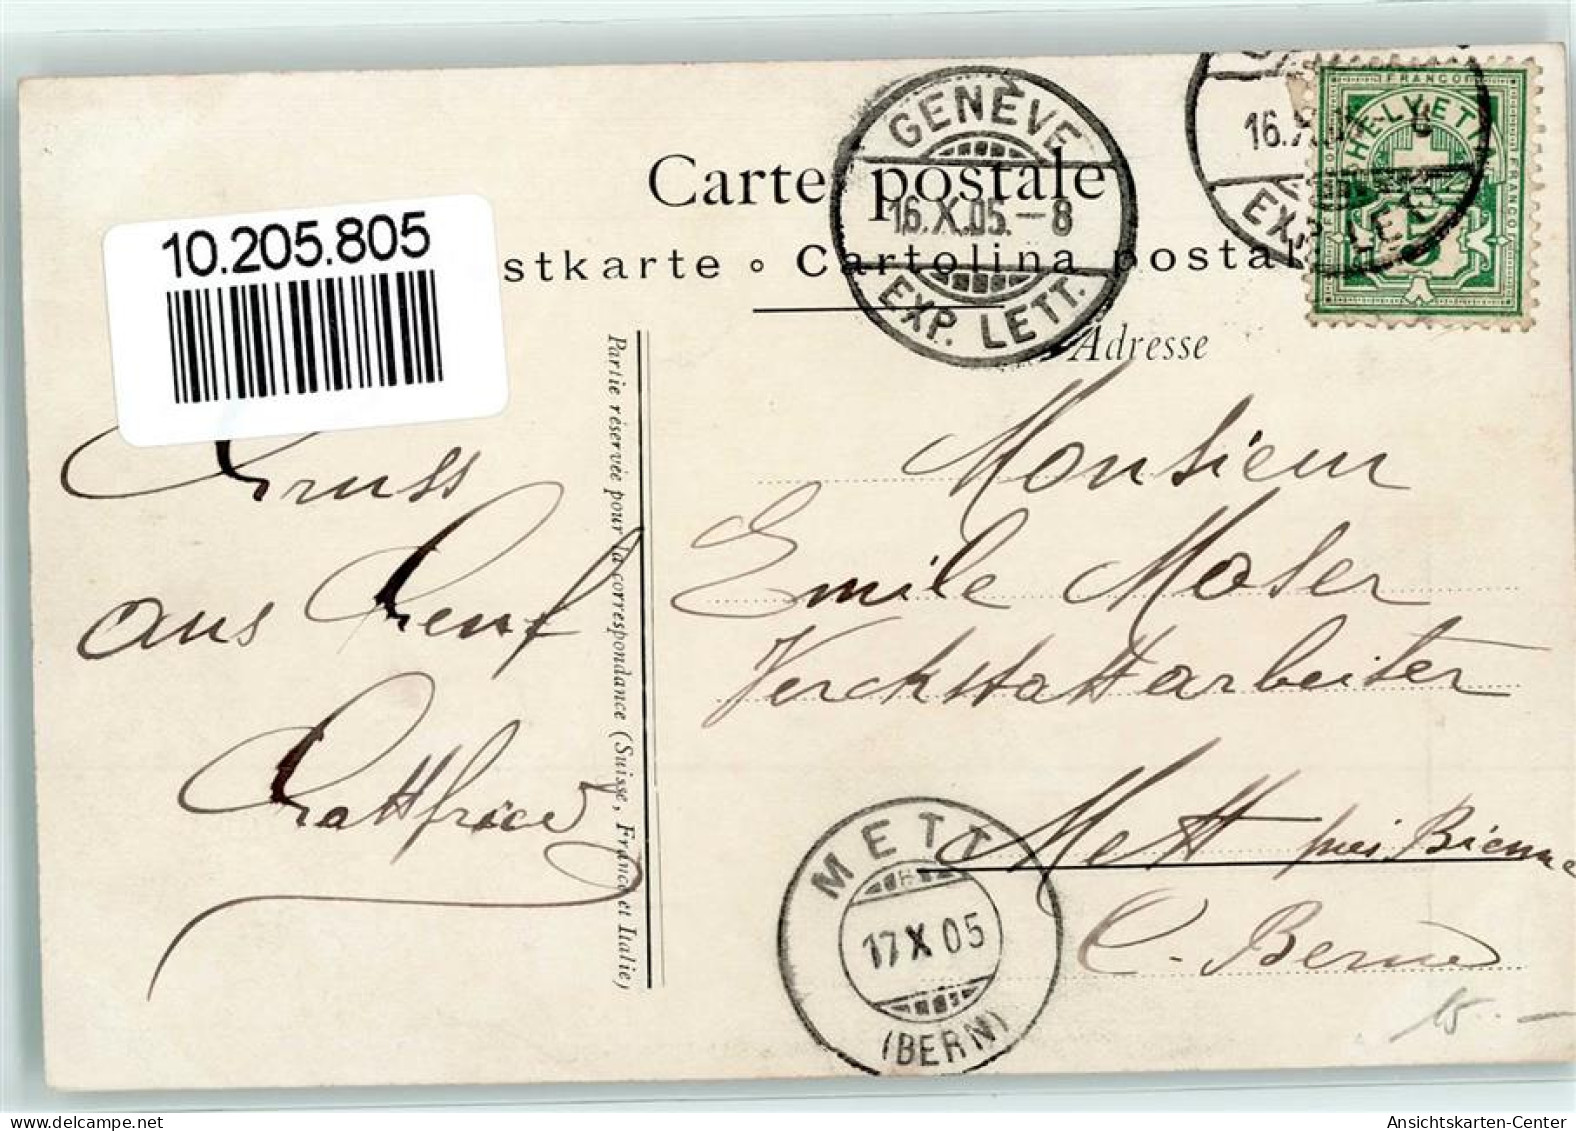 Carte postale
stkarte ∘ Cartolina postal
Adresse
10.205.805
GENÈVE
16.X.05.–8
EXP. LETT.
16.X
EXP. LETT.
FRANCO
HELVETIA
FRANCO
Partie réservée pour la correspondance (Suisse, France et Italie)
Gruss
aus Genf
Gottfried
Monsieur
Emile Moser
Werkstattarbeiter
Mett près Bienne
C. Berne
METT
17 X 05
(BERN)
15.–
www.delcampe.net
Ansichtskarten-Center